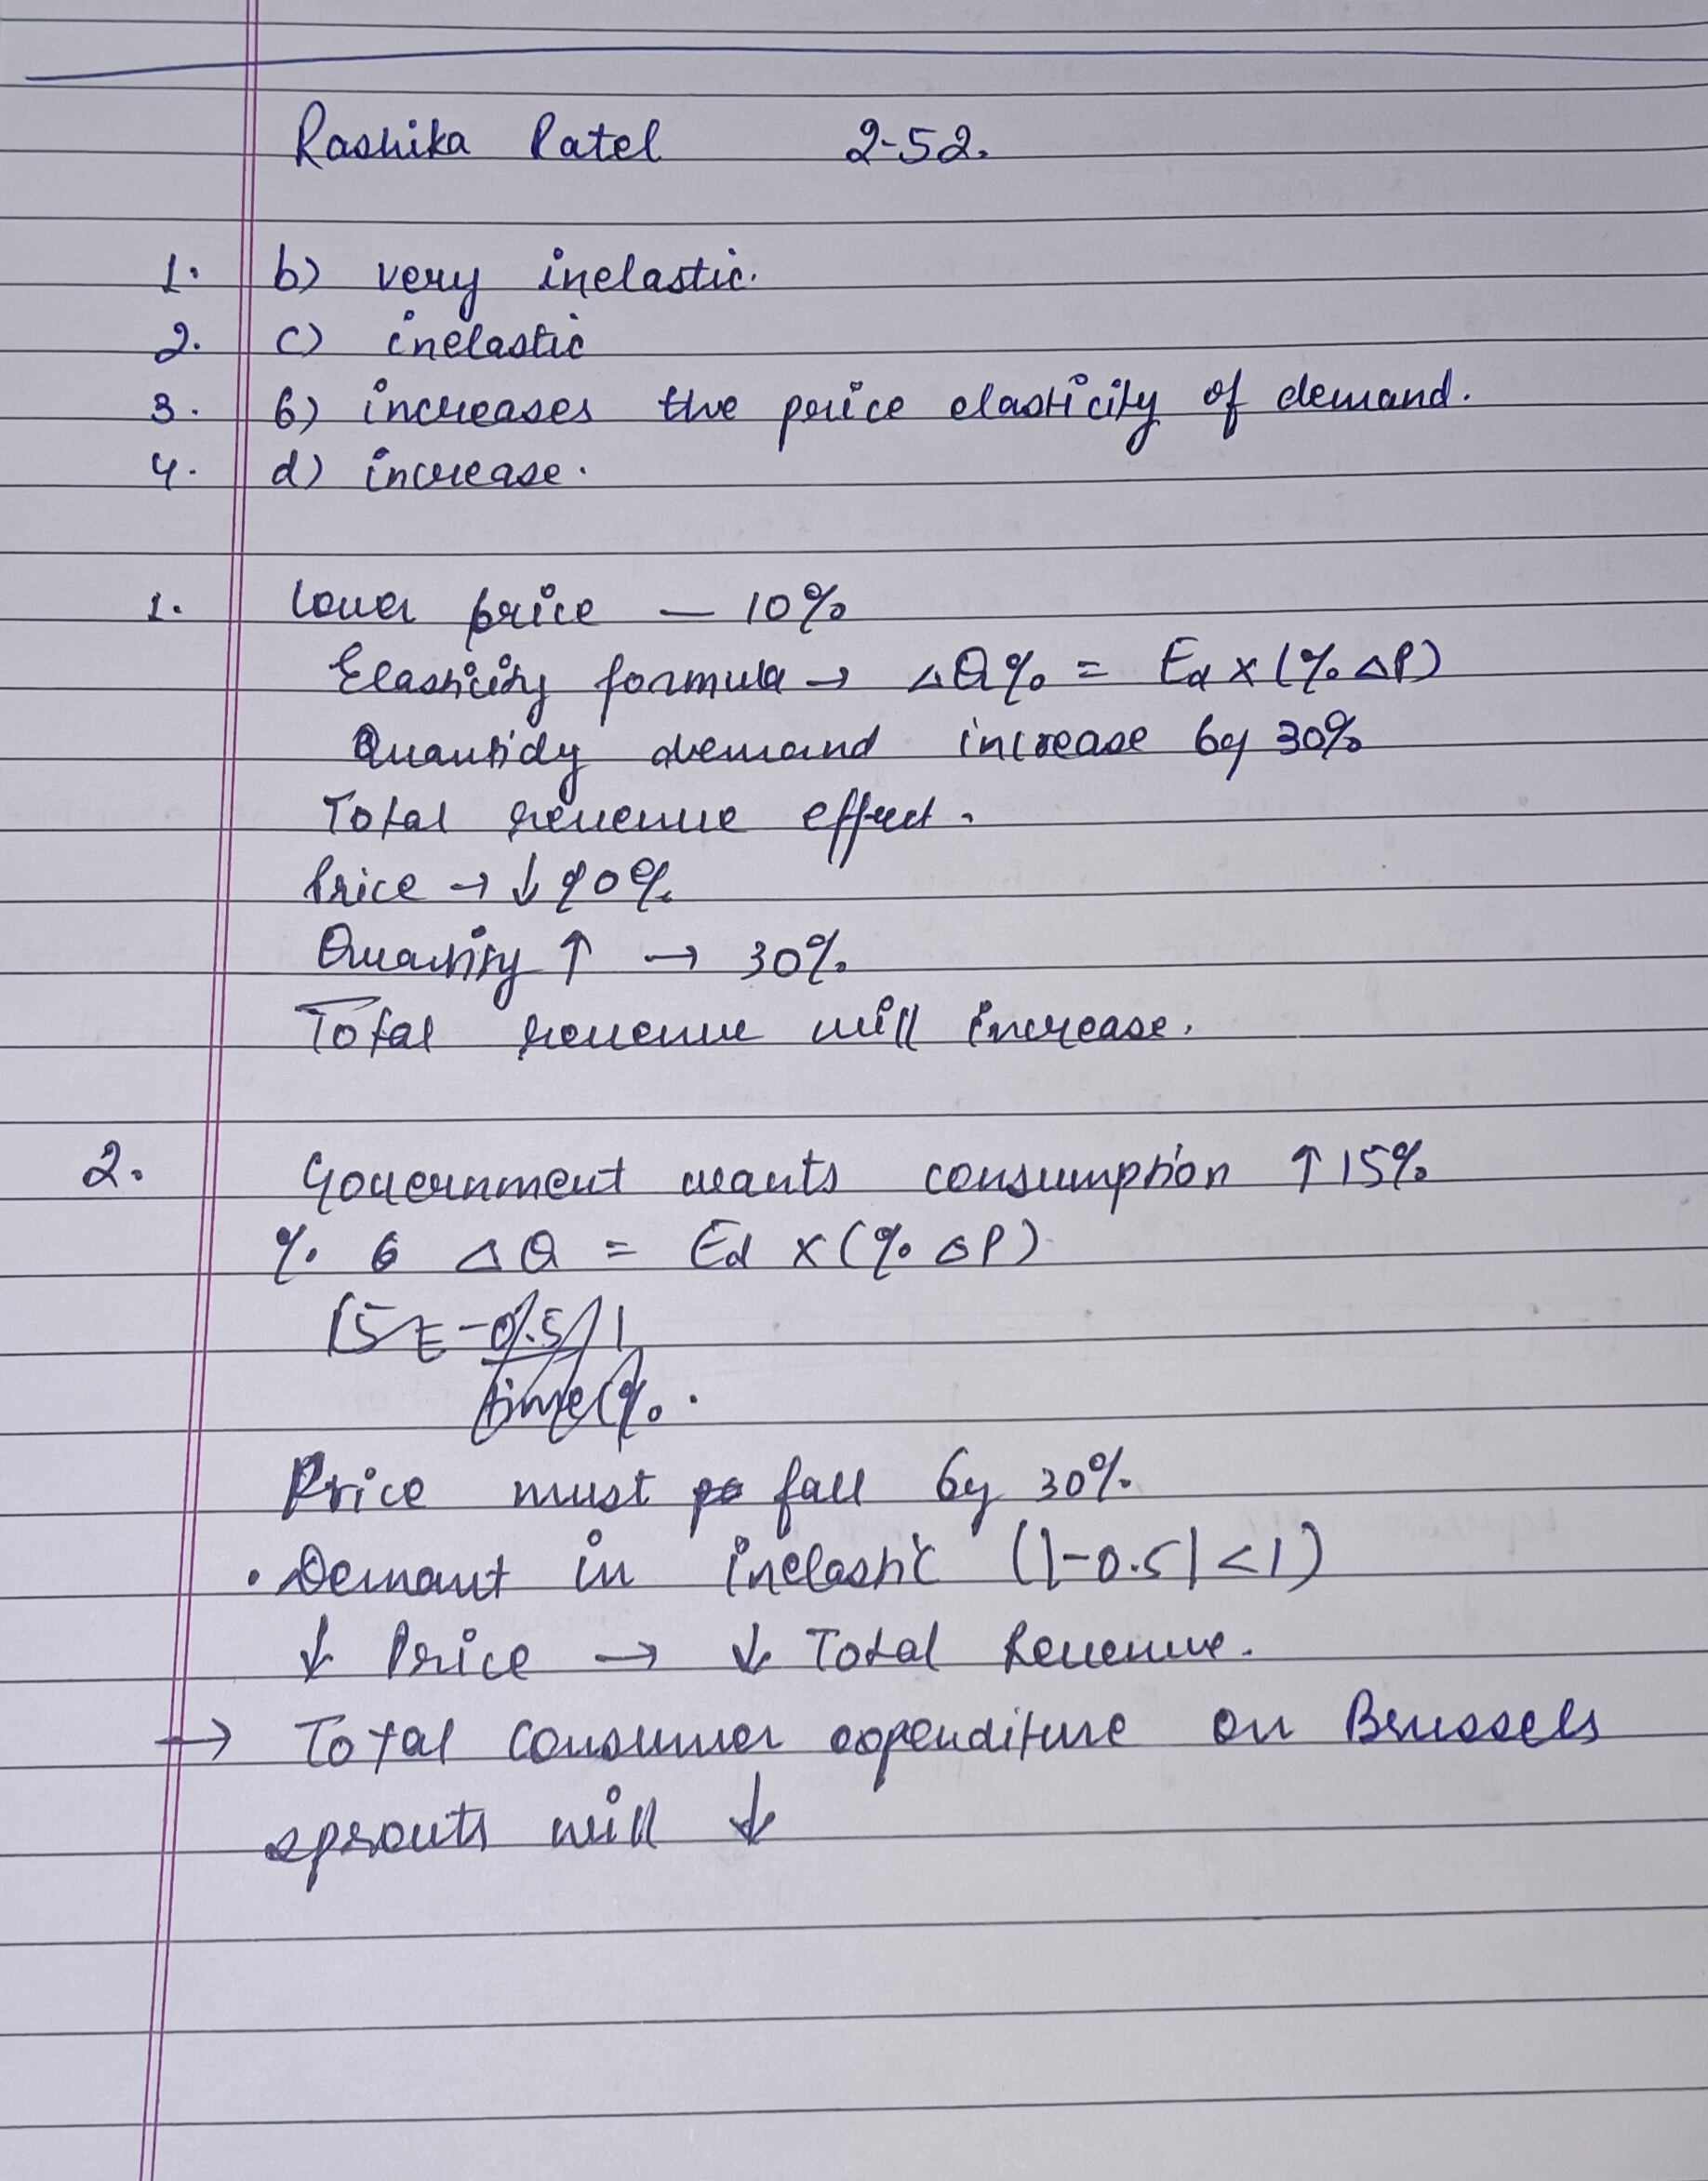 Rashika Patel 2-52.
1. b) very inelastic.
2. c) inelastic
3. b) increases the price elasticity of demand.
4. d) increase.
1. Lower price — 10%
Elasticity formula → ΔQ% = Ed x (% ΔP)
Quantidy demand increase by 30%
Total revenue effect.
Price → ↓ 90%
Quantity ↑ → 30%.
Total revenue will increase.
2. Government wants consumption ↑ 15%
% ΔQ = Ed x (% ΔP)
Price must fall by 30%.
• Demant in inelastic (|-0.5| < 1)
↓ Price → ↓ Total Revenue.
→ Total consumer expenditure on Brussels
sprouts will ↓